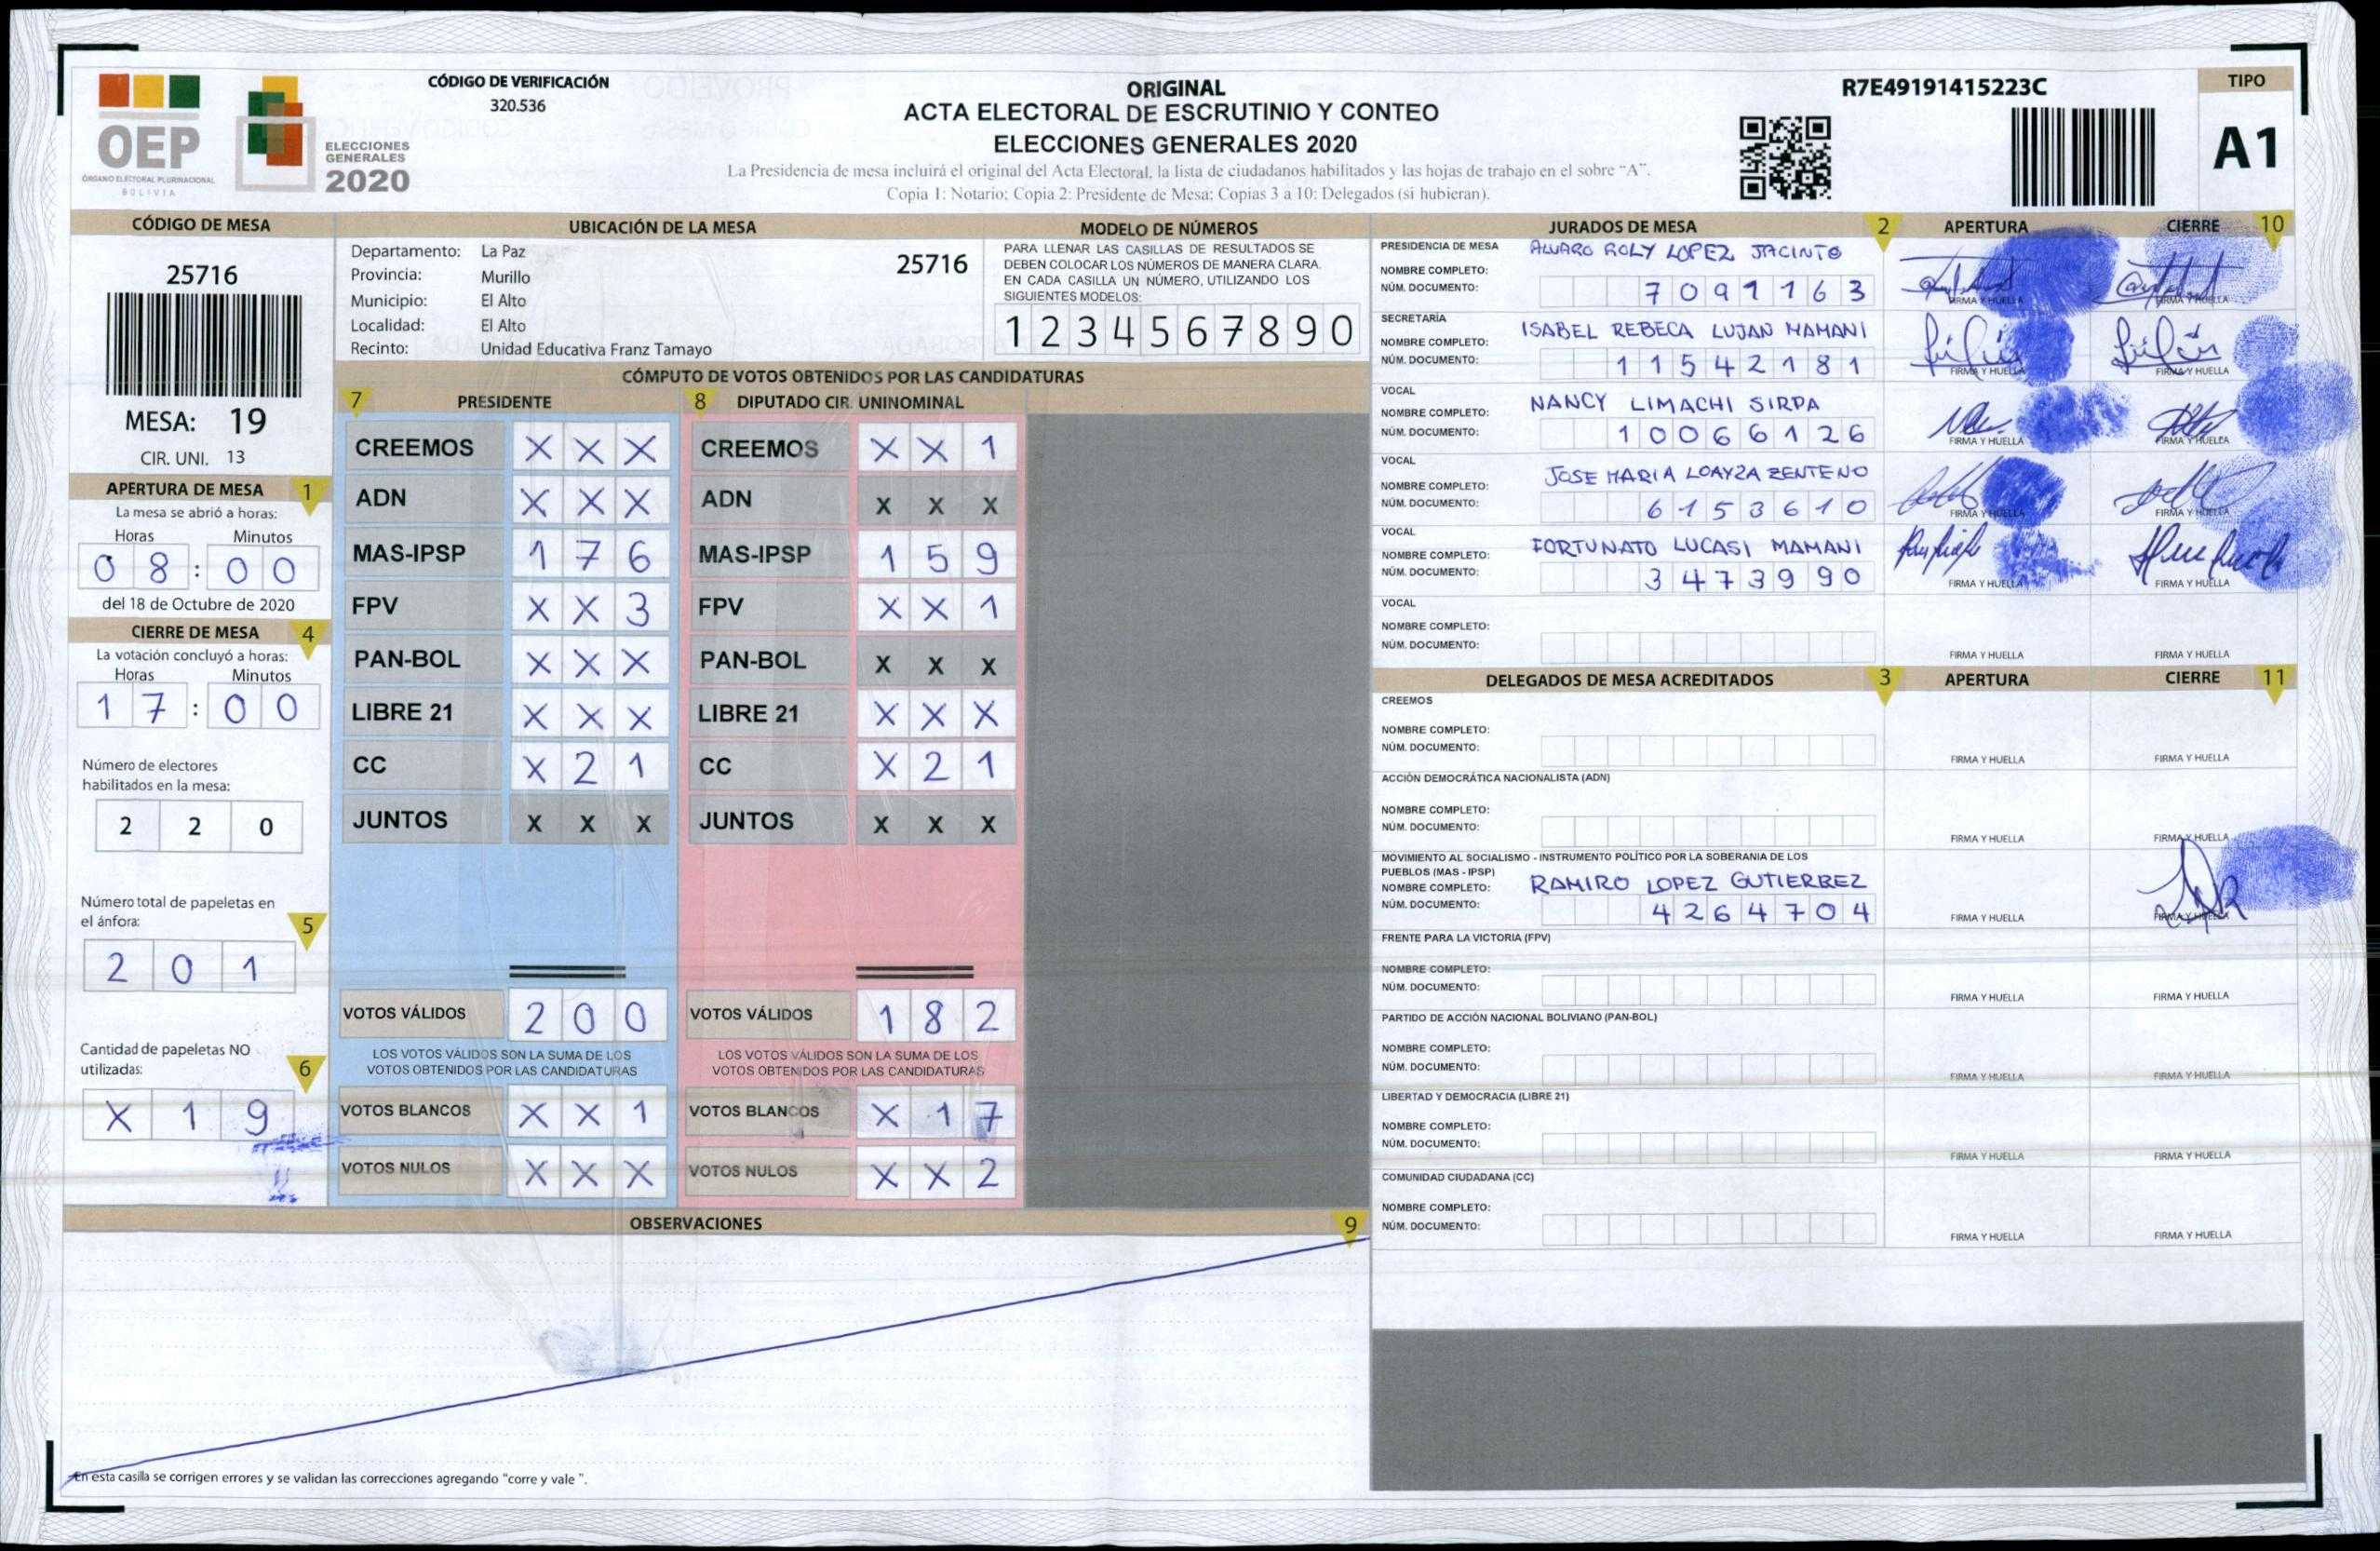 OEP
ÓRGANO ELECTORAL PLURINACIONAL
BOLIVIA
ELECCIONES
GENERALES
2020
CÓDIGO DE VERIFICACIÓN
320.536
ORIGINAL
ACTA ELECTORAL DE ESCRUTINIO Y CONTEO
ELECCIONES GENERALES 2020
La Presidencia de mesa incluirá el original del Acta Electoral, la lista de ciudadanos habilitados y las hojas de trabajo en el sobre "A".
Copia 1: Notario; Copia 2: Presidente de Mesa; Copias 3 a 10: Delegados (si hubieran).
R7E49191415223C
TIPO
A1
CÓDIGO DE MESA
25716
MESA: 19
CIR. UNI. 13
APERTURA DE MESA 1
La mesa se abrió a horas:
Horas Minutos
0 8 : 0 0
del 18 de Octubre de 2020
CIERRE DE MESA 4
La votación concluyó a horas:
Horas Minutos
1 7 : 0 0
Número de electores
habilitados en la mesa:
2 2 0
Número total de papeletas en
el ánfora: 5
2 0 1
Cantidad de papeletas NO
utilizadas: 6
X 1 9
UBICACIÓN DE LA MESA
Departamento: La Paz
Provincia: Murillo
Municipio: El Alto
Localidad: El Alto
Recinto: Unidad Educativa Franz Tamayo
25716
MODELO DE NÚMEROS
PARA LLENAR LAS CASILLAS DE RESULTADOS SE
DEBEN COLOCAR LOS NÚMEROS DE MANERA CLARA.
EN CADA CASILLA UN NÚMERO, UTILIZANDO LOS
SIGUIENTES MODELOS:
1 2 3 4 5 6 7 8 9 0
CÓMPUTO DE VOTOS OBTENIDOS POR LAS CANDIDATURAS
7 PRESIDENTE 8 DIPUTADO CIR. UNINOMINAL
CREEMOS X X X CREEMOS X X 1
ADN X X X ADN X X X
MAS-IPSP 1 7 6 MAS-IPSP 1 5 9
FPV X X 3 FPV X X 1
PAN-BOL X X X PAN-BOL X X X
LIBRE 21 X X X LIBRE 21 X X X
CC X 2 1 CC X 2 1
JUNTOS X X X JUNTOS X X X
VOTOS VÁLIDOS 2 0 0 VOTOS VÁLIDOS 1 8 2
LOS VOTOS VÁLIDOS SON LA SUMA DE LOS LOS VOTOS VÁLIDOS SON LA SUMA DE LOS
VOTOS OBTENIDOS POR LAS CANDIDATURAS VOTOS OBTENIDOS POR LAS CANDIDATURAS
VOTOS BLANCOS X X 1 VOTOS BLANCOS X 1 7
VOTOS NULOS X X X VOTOS NULOS X X 2
OBSERVACIONES 9
En esta casilla se corrigen errores y se validan las correcciones agregando "corre y vale ".
JURADOS DE MESA 2 APERTURA CIERRE 10
PRESIDENCIA DE MESA
NOMBRE COMPLETO: ALVARO ROLY LOPEZ JACINTO
NÚM. DOCUMENTO: 7 0 9 1 1 6 3
FIRMA Y HUELLA FIRMA Y HUELLA
SECRETARÍA
NOMBRE COMPLETO: ISABEL REBECA LUJAN MAMANI
NÚM. DOCUMENTO: 1 1 5 4 2 1 8 1
FIRMA Y HUELLA FIRMA Y HUELLA
VOCAL
NOMBRE COMPLETO: NANCY LIMACHI SIRPA
NÚM. DOCUMENTO: 1 0 0 6 6 1 2 6
FIRMA Y HUELLA FIRMA Y HUELLA
VOCAL
NOMBRE COMPLETO: JOSE MARIA LOAYZA ZENTENO
NÚM. DOCUMENTO: 6 1 5 3 6 1 0
FIRMA Y HUELLA FIRMA Y HUELLA
VOCAL
NOMBRE COMPLETO: FORTUNATO LUCASI MAMANI
NÚM. DOCUMENTO: 3 4 7 3 9 9 0
FIRMA Y HUELLA FIRMA Y HUELLA
VOCAL
NOMBRE COMPLETO:
NÚM. DOCUMENTO:
FIRMA Y HUELLA FIRMA Y HUELLA
DELEGADOS DE MESA ACREDITADOS 3 APERTURA CIERRE 11
CREEMOS
NOMBRE COMPLETO:
NÚM. DOCUMENTO:
FIRMA Y HUELLA FIRMA Y HUELLA
ACCIÓN DEMOCRÁTICA NACIONALISTA (ADN)
NOMBRE COMPLETO:
NÚM. DOCUMENTO:
FIRMA Y HUELLA FIRMA Y HUELLA
MOVIMIENTO AL SOCIALISMO - INSTRUMENTO POLÍTICO POR LA SOBERANIA DE LOS
PUEBLOS (MAS - IPSP)
NOMBRE COMPLETO: RAMIRO LOPEZ GUTIERREZ
NÚM. DOCUMENTO: 4 2 6 4 7 0 4
FIRMA Y HUELLA FIRMA Y HUELLA
FRENTE PARA LA VICTORIA (FPV)
NOMBRE COMPLETO:
NÚM. DOCUMENTO:
FIRMA Y HUELLA FIRMA Y HUELLA
PARTIDO DE ACCIÓN NACIONAL BOLIVIANO (PAN-BOL)
NOMBRE COMPLETO:
NÚM. DOCUMENTO:
FIRMA Y HUELLA FIRMA Y HUELLA
LIBERTAD Y DEMOCRACIA (LIBRE 21)
NOMBRE COMPLETO:
NÚM. DOCUMENTO:
FIRMA Y HUELLA FIRMA Y HUELLA
COMUNIDAD CIUDADANA (CC)
NOMBRE COMPLETO:
NÚM. DOCUMENTO:
FIRMA Y HUELLA FIRMA Y HUELLA